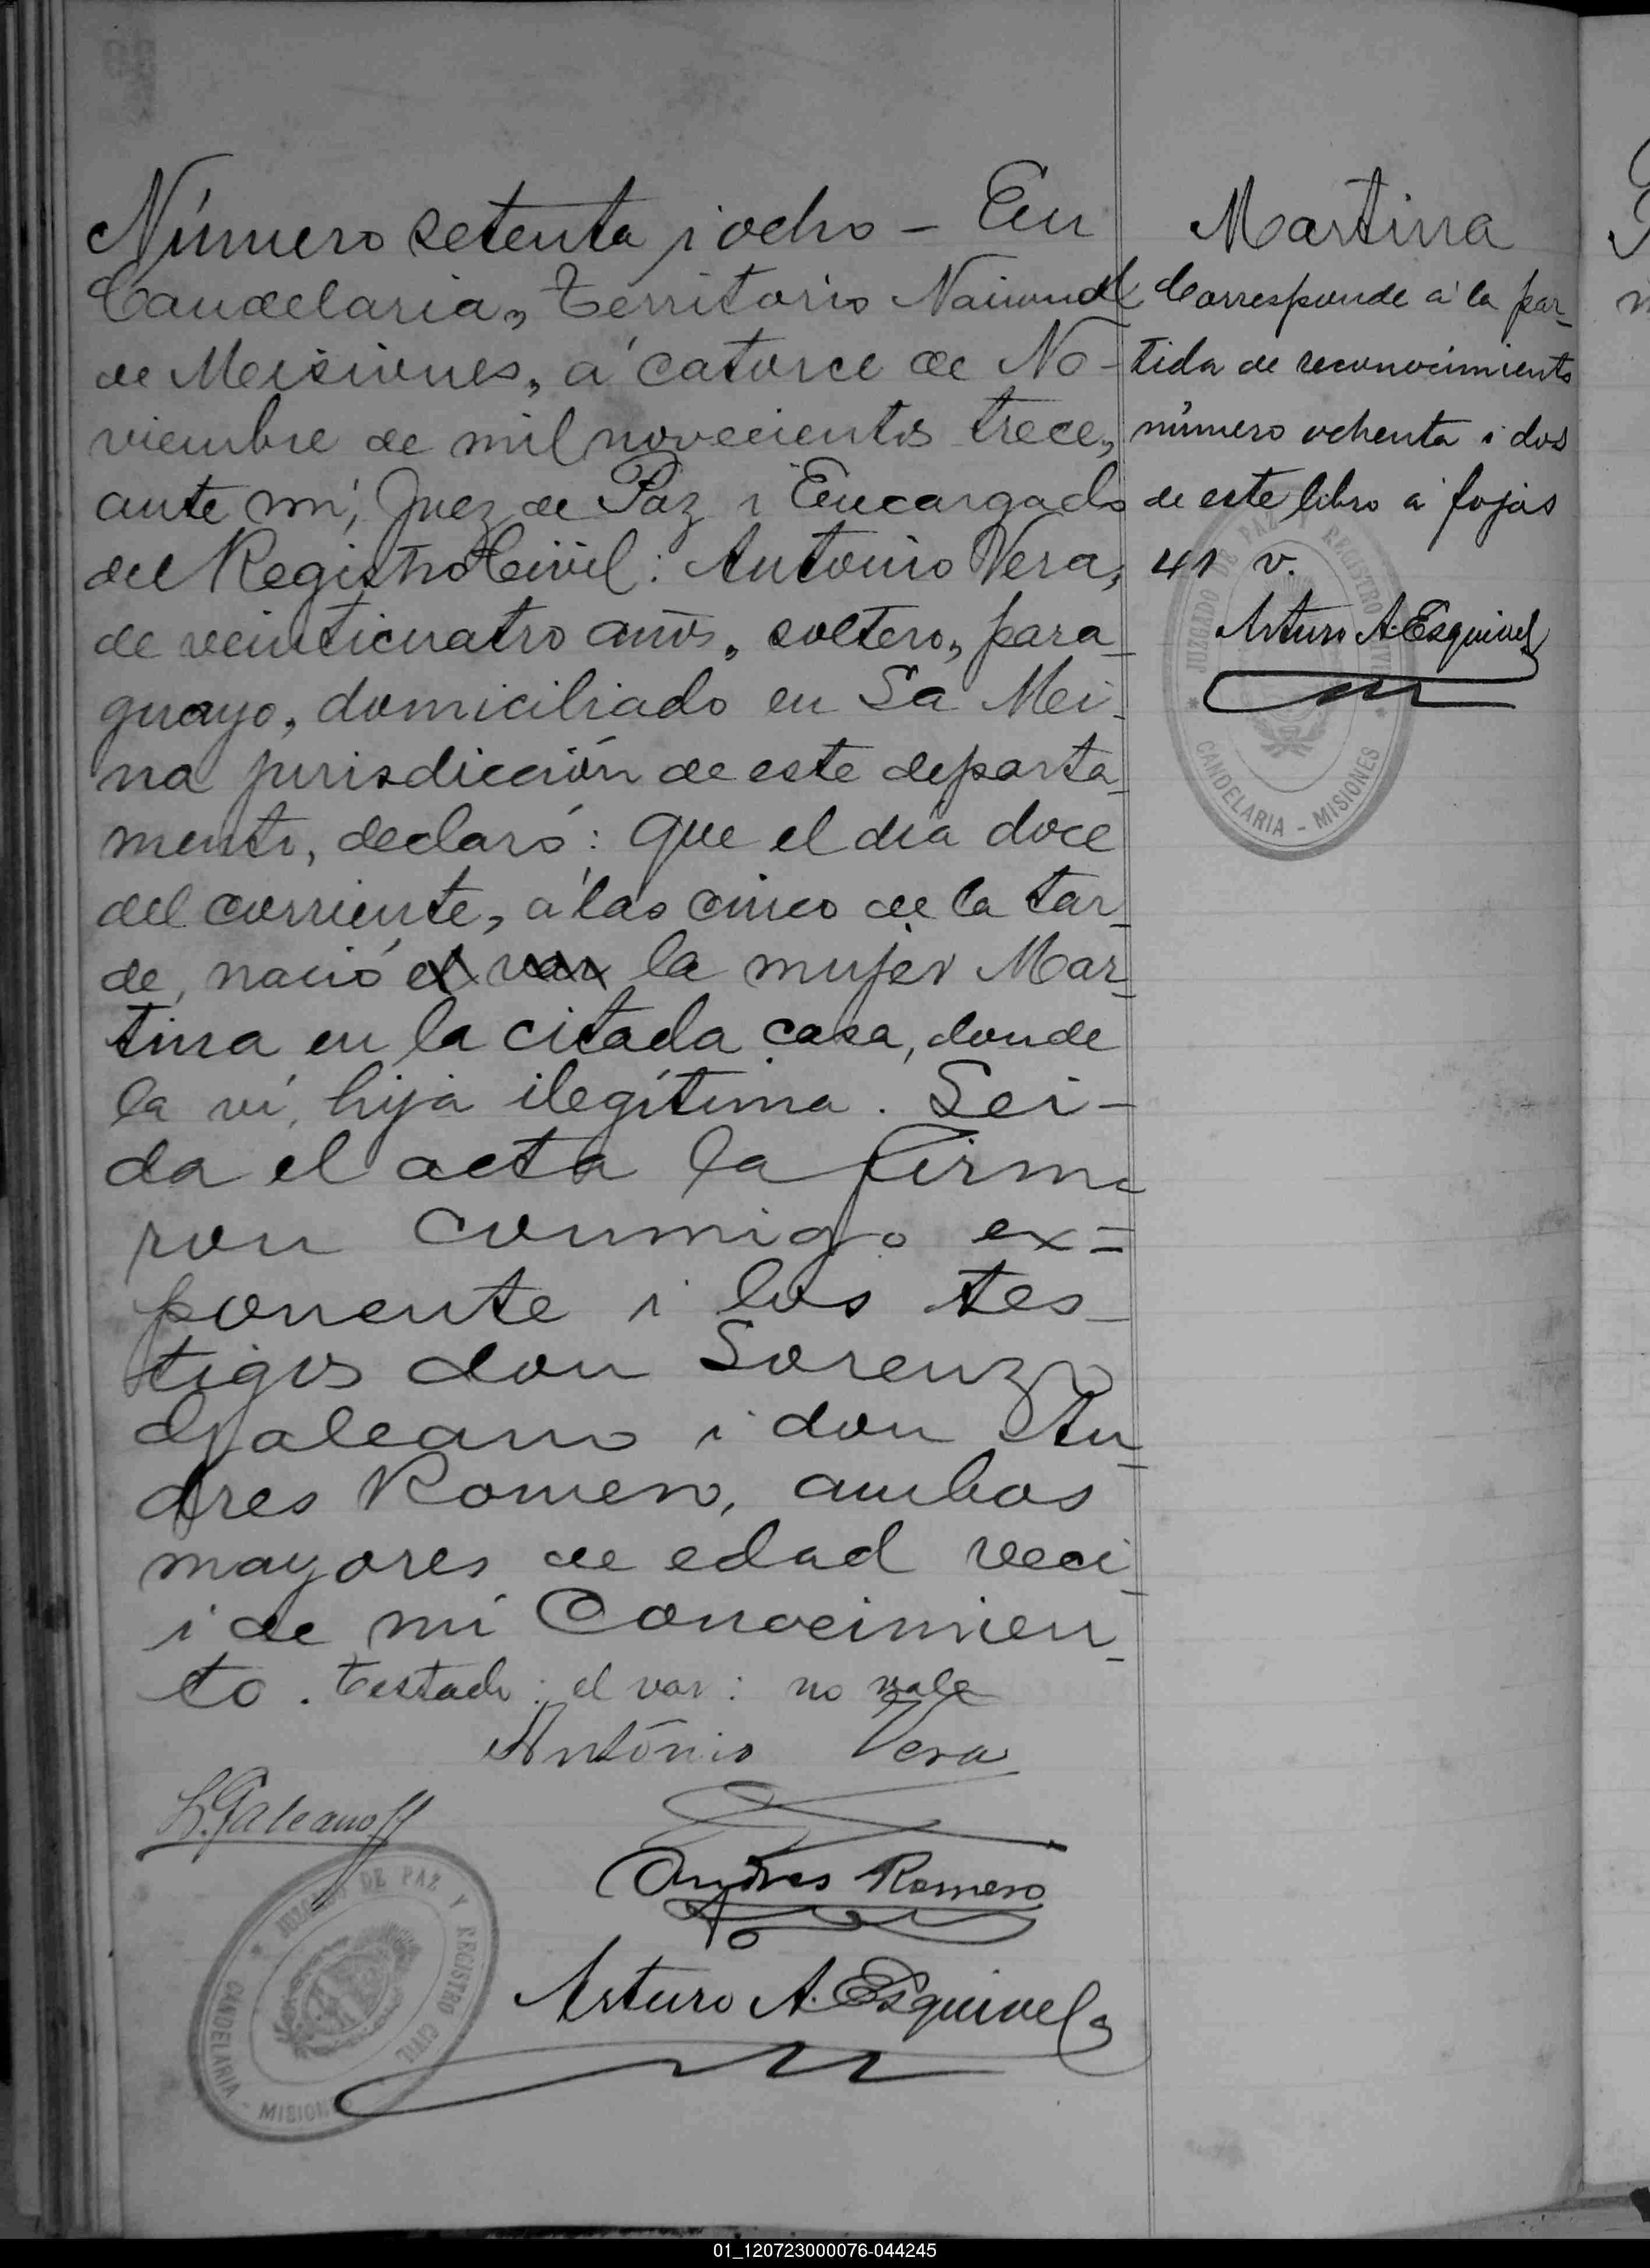 Número setenta i ocho – En
Candelaria, Territorio Nacional
de Misiones, á catorce de No-
viembre de mil novecientos trece,
ante mí, Juez de Paz i Encargado
del Registro Civil: Antonio Vera,
de veinticuatro años, soltero, para-
guayo, domiciliado en La Mi-
na jurisdicción de este departa-
mento, declaró: Que el día doce
del corriente, á las cinco de la tar-
de, nació el var la mujer Mar-
tina en la citada casa, donde
la ví, hija ilegítima. Lei-
da el acta la firma
ron conmigo ex=
ponente i los tes-
tigos don Lorenzo
Galeano i don An-
dres Romero, ambos
mayores de edad veci-
i de mi Conocimien-
to. Testado: el var: no vale
António Vera
L. Galeano
Andres Romero
Arturo A. Esquivel
JUZGADO DE PAZ Y REGISTRO CIVIL
CANDELARIA - MISIONES
Martina
Corresponde á la par-
tida de reconocimiento
número ochenta i dos
de este libro á fojas
41 v.
Arturo A. Esquivel
JUZGADO DE PAZ Y REGISTRO CIVIL
CANDELARIA - MISIONES
01_120723000076-044245